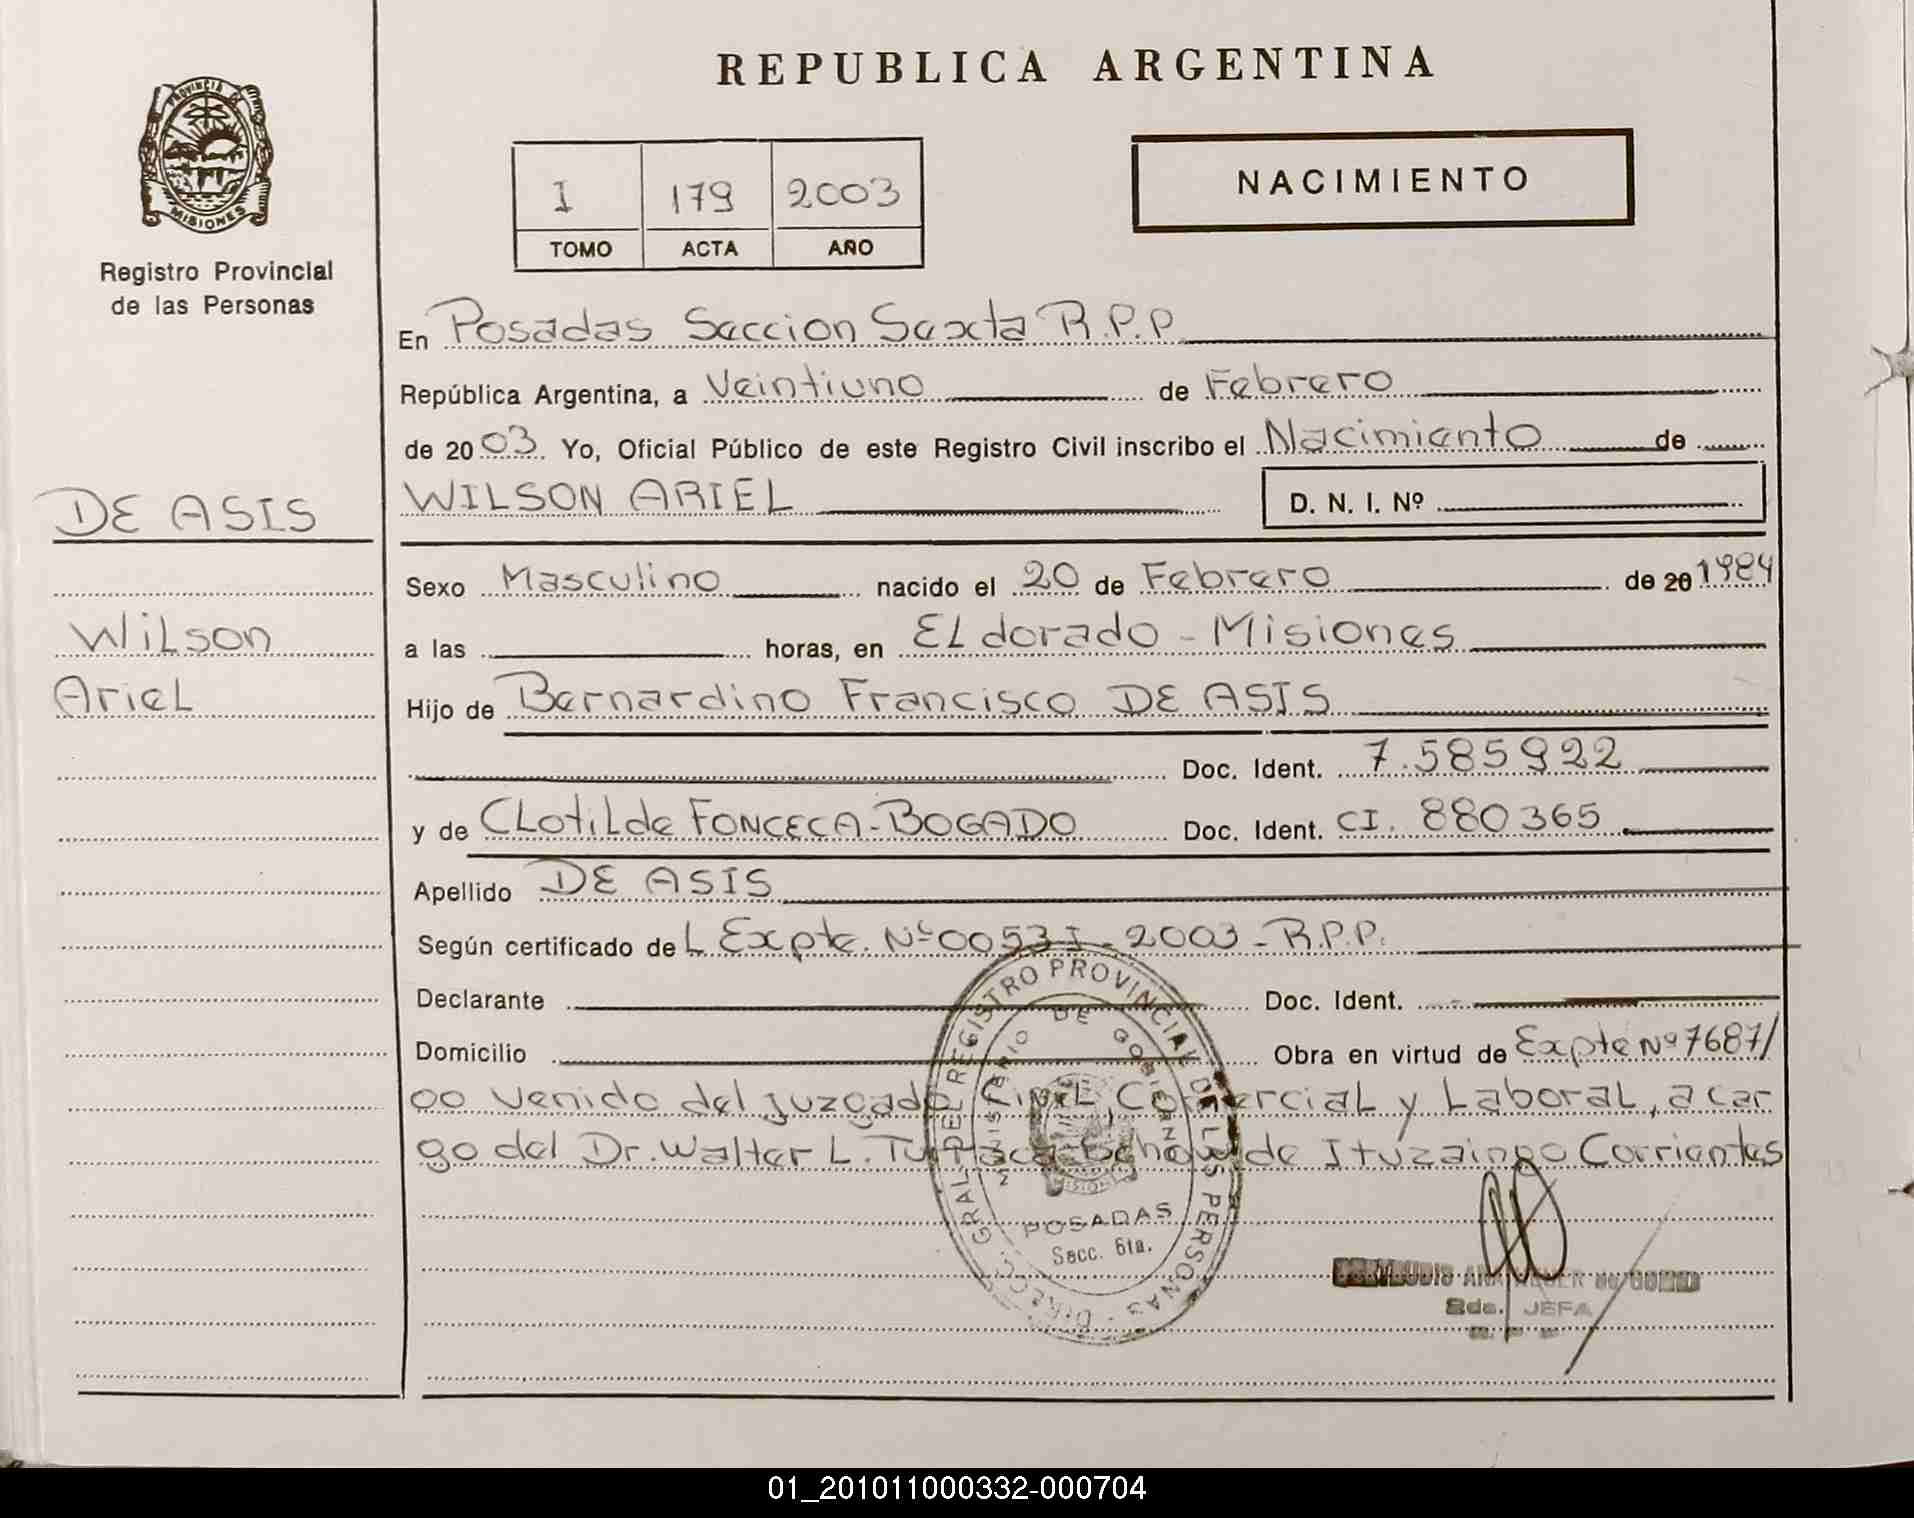 REPUBLICA ARGENTINA
PROVINCIA DE
MISIONES
Registro Provincial
de las Personas
I 179 2003
TOMO ACTA AÑO
NACIMIENTO
En Posadas Seccion Sexta R.P.P.
República Argentina, a Veintiuno de Febrero
de 2003. Yo, Oficial Público de este Registro Civil inscribo el Nacimiento de
DE ASIS
WILSON ARIEL D. N. I. Nº
Sexo Masculino nacido el 20 de Febrero de 20 1984
Wilson
a las horas, en ELdorado - Misiones
Ariel
Hijo de Bernardino Francisco DE ASIS
Doc. Ident. 7.585922
y de CLotiLde FONCECA-BOGADO Doc. Ident. CI. 880365
Apellido DE ASIS
Según certificado de L Expte. Nº 0053 I - 2003 - R.P.P.
Declarante Doc. Ident.
Domicilio Obra en virtud de Expte Nº 7687/
00 venido del juzgado CiviL, Comercial y LaboraL, a car
go del Dr. Walter L. de Ituzaingo Corrientes
DIRECC. GRAL. DEL REGISTRO PROVINCIAL DE LAS PERSONAS
MINISTERIO DE GOBIERNO
MISIONES
POSADAS
Secc. 6ta.
ANA
2da. JEFA
01_201011000332-000704